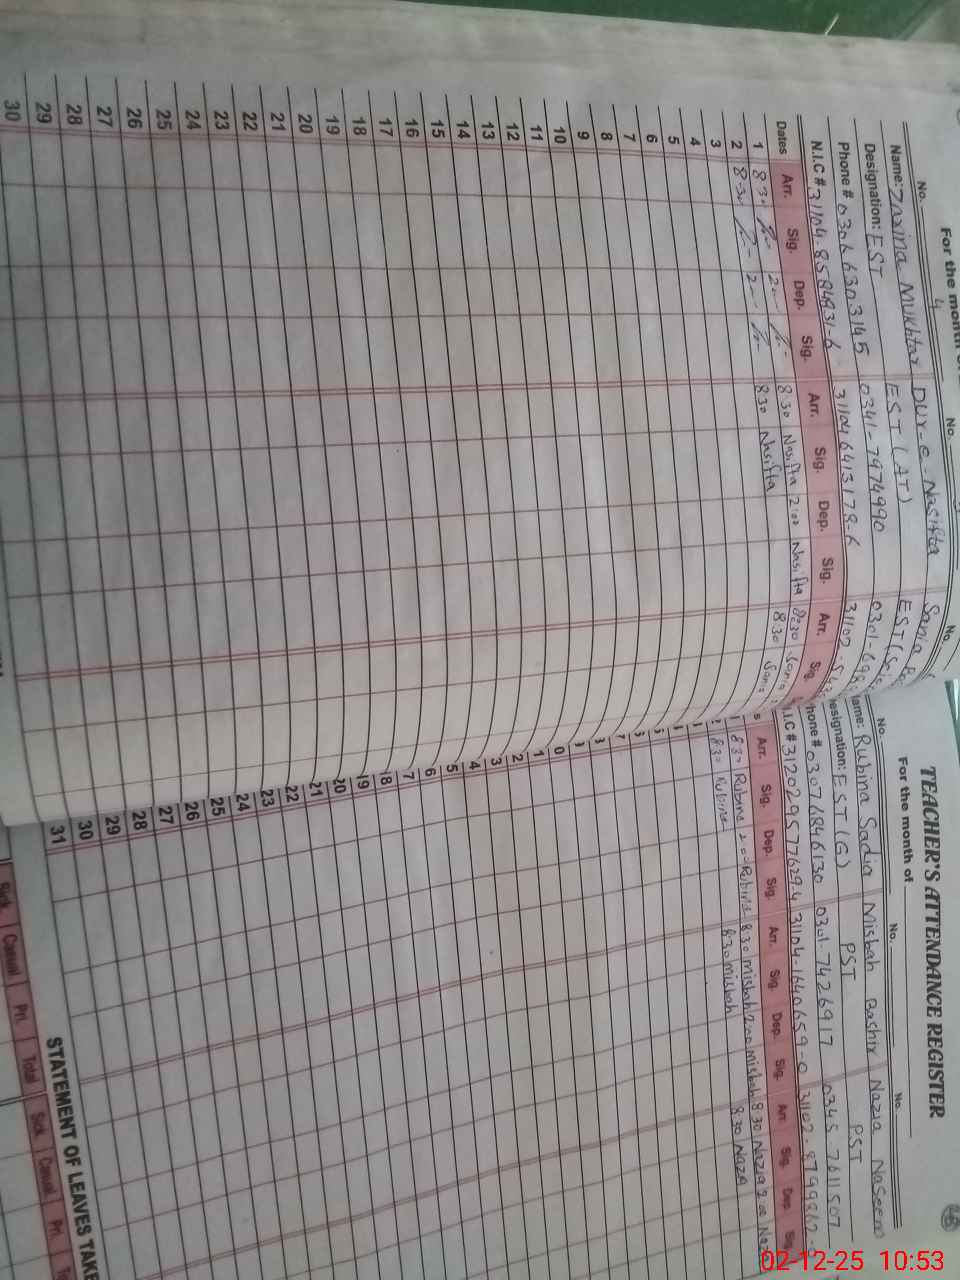 For the month
No. 4 No. No.
Name: Zarina Mukhtar Dur-e-Nasifta Sania
Designation: EST EST (AT) EST (Sci
Phone # 0306 6303145 0341-7974990 0301-698
N.I.C # 31104-8584931-6 31104 6413178-6 31102-
Dates Arr. Sig. Dep. Sig. Arr. Sig. Dep. Sig. Arr. Sig.
1 8.30 2.00 8.30 Nasifta 2.00 Nasifta 8.30 Sania
2 8.30 2.00 8.30 Nasifta 8.30 Sania
3
4
5
6
7
8
9
10
11
12
13
14
15
16
17
18
19
20
21
22
23
24
25
26
27
28
29
30
TEACHER'S ATTENDANCE REGISTER
For the month of
No. No. No.
ame: Rubina Sadia Misbah Bashir Nazia Naseem
esignation: EST (G) PST PST
hone # 0307 6846130 0301-7426917 0345 7611507
.I.C # 31202 9577629-4 31104-1640659-0 31102-8799862-
s Arr. Sig. Dep. Sig. Arr. Sig. Dep. Sig. Arr. Sig. Dep. Sig.
1 8.30 Rubina 2.0 Rubina 8.30 Misbah 2.00 Misbah 8.30 Nazia 2.00 Naz
2 8.30 Rubina 8.30 Misbah 8.30 Nazia
7
0
1
2
3
4
5
6
7
18
19
20
21
22
23
24
25
26
27
28
29
30
31
STATEMENT OF LEAVES TAKE
Sick Casual Pri. Total Sick Casual Pri.
02-12-25 10:53